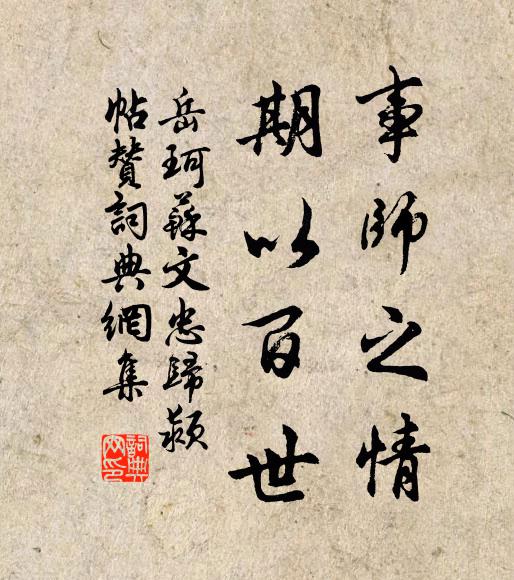 事師之情
期以百世
岳珂蘇文忠歸潁
帖贊詞典網集
詞典
网印